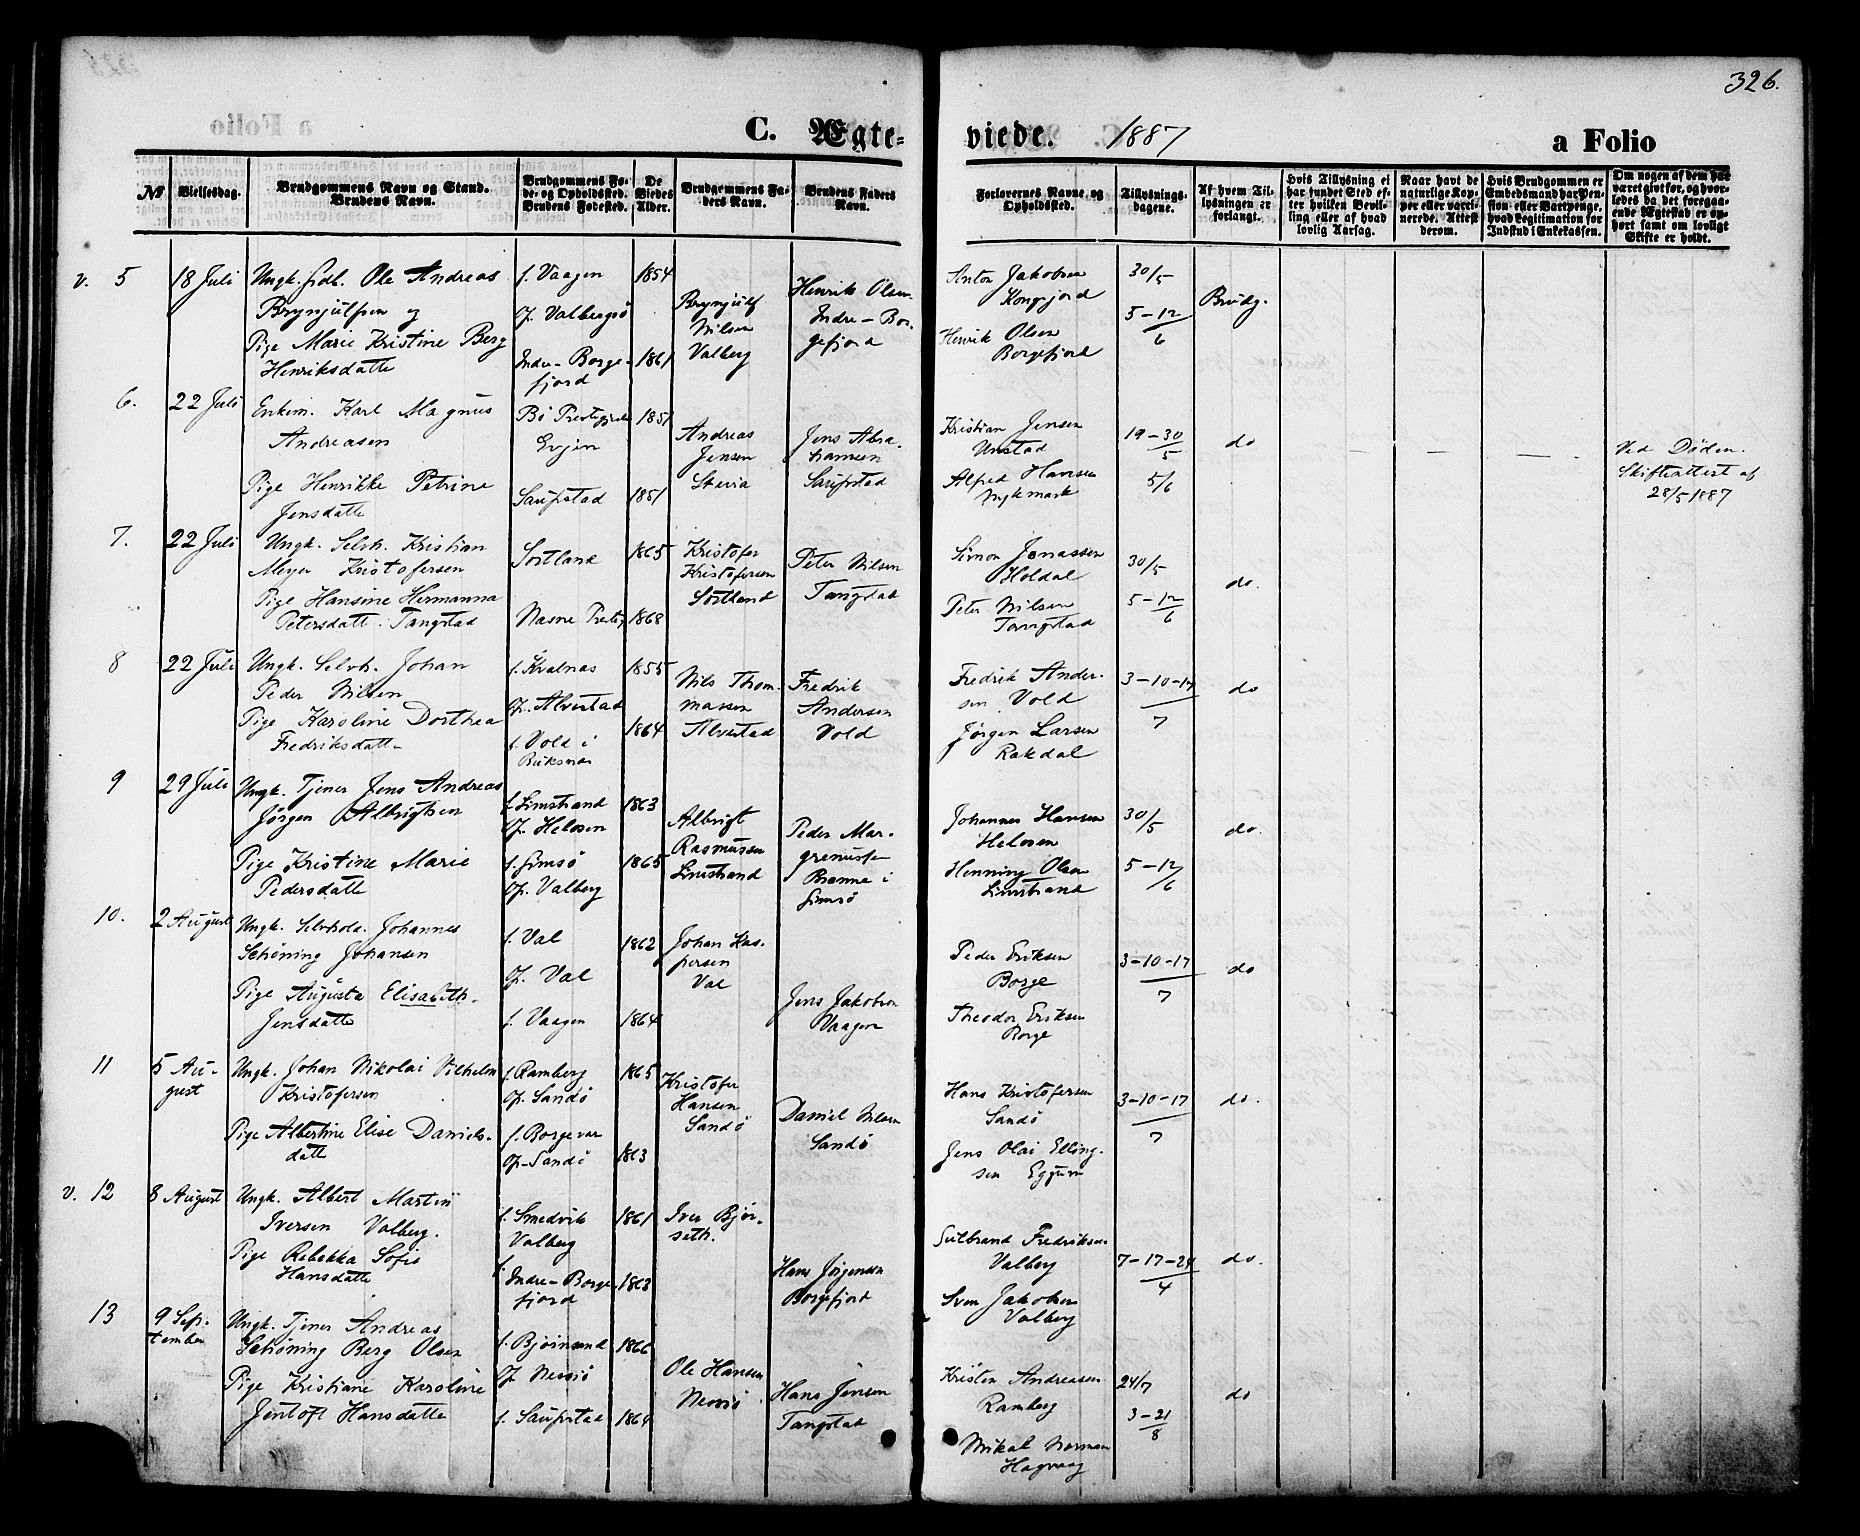 326.
C. Ægte-
viede. 1887
a Folio
No
Vielsesdag.
Brudgommens Navn og Stand.
Brudens Navn.
Brudgommens Fø-
de- og Opholdssted.
Brudens Fødested.
De
Viedes
Alder.
Brudgommens Fa-
ders Navn.
Brudens Faders
Navn.
Forlovernes Navne, og
Opholdssted.
Tillysnings-
dagene.
Af hvem Til-
lysningen er
forlangt.
Hvis Tillysning ei
har fundet Sted ef-
ter hvilken Bevil-
ling eller af hvad
lovlig Aarsag.
Naar havt de
naturlige Kop-
per eller varci-
nerede. Attest
derom.
Hvis Brudgommen er
Embedsmand har Pen-
sion eller Vartpenge,
hvad Legitimation for
Indskud i Enkekassen.
Om nogen af dem har
været gift før, og hvor-
ledes da det foregaa-
ende Ægteskab er op-
hørt samt om lovligt
Skifte er holdt.
v. 5
18 Juli
Ungk. Ole Andreas
Brynjulfsen og
Pige Marie Kristine Berg
Henriksdatte
f. Vaagen
Of. Valbergsö
Indre-Borge-
fjord
1854
1861
Brynjulf
Nilsen
Valberg
Henrik Olsen
Indre-Bor-
gefjord
Anton Jakobsen
Kongsjord
Henrik Olsen
Borgefjord
30/5
5-12
6
Brudg.
6.
22 Juli
Enkem. Karl Magnus
Andreasen
Pige Henrikke Petrine
Jensdatte
Bö Prestegjeld
Evjen
Saupstad
1851
1851
Andreas
Jensen
Steria
Jens Abra-
hamsen
Saupstad
Kristian Jensen
Unstad
Alfred Hansen
Nykmark
19-30
5
5/6
do
Ved Döden.
Skifteattest af
28/5 1887
7.
22 Juli
Ungk. Selvh. Kristian
Meyer Kristofersen
Pige Hansine Hermanna
Petersdatt. Tangstad
Sortland
Næsne Prestg.
1865
1868
Kristofer
Kristofersen
Sortland
Peter Nilsen
Tangstad
Simon Jonassen
Holdal
Peter Nilsen
Tangstad
30/5
5-12
6
do.
8
22 Juli
Ungk. Selvh. Johan
Peder Nilsen
Pige Karoline Dorthea
Fredriksdatte
f. Kvalnæs
Of. Alvestad
f. Vold i
Buksnæs
1855
1864
Nils Thom-
massen
Alvestad
Fredrik
Andersen
Vold
Fredrik Ander-
sen Vold
Jørgen Larsen
Rakdal
3-10-17
7
do
9
29 Juli
Ungk. Tjener Jens Andreas
Jørgen Albrigtsen
Pige Kristine Marie
Pedersdatte
f. Limstrand
Of. Helosen
f. Gimsö
Of. Valberg
1863
1865
Albrigt
Rasmussen
Limstrand
Peder Mar-
grenussen
Brenna i
Gimsö
Johannes Hansen
Helosen
Henning Olsen
Limstrand
30/5
5-12
6
do.
10.
2 August
Ungk. Selvhold. Johannes
Schøning Johansen
Pige Augusta Elisabeth
Jensdatte
f. Val
Of. Val
f. Vaagen
1862
1864
Johan Kas-
persen
Val
Jens Jakobsen
Vaagen
Peder Eriksen
Borge
Theodor Eriksen
Borge
3-10-17
7
do
11
5 Au-
gust
Ungk. Johan Nikolai Vilhelm
Kristofersen
Pige Albertine Elise Daniels-
datte
f. Ramberg
Of. Sandö
f. Borgevær
Of. Sandö
1865
1863
Kristofer
Hansen
Sandö
Daniel Nilsen
Sandö
Hans Kristofersen
Sandö
Jens Olai Elling-
sen Eggum
3-10-17
7
do.
v. 12
8 August
Ungk. Albert Martin
Iversen Valberg.
Pige Rebekka Sofie
Hansdatte
f. Smedvik
Valberg
f. Indre-Borge-
fjord
1861
1863
Iver Bjør-
seth.
Hans Jörgensen
Borgefjord
Gulbrand Fredriksen
Valberg
Sven Jakobsen
Valberg
7-17-24
4
do.
13
9 Sep-
tember
Ungk. Tjener Andreas
Schøning Berg Olsen
Pige Kristiane Karoline
Jentoft Hansdatte
f. Bjørnsund
Of. Nessö
f. Saupstad
1866
1864
Ole Hansen
Nessö
Hans Jensen
Tangstad
Kristen Andreasen
Ramberg
Mikal Norman
Hagvaag
24/7
3-21
8
do